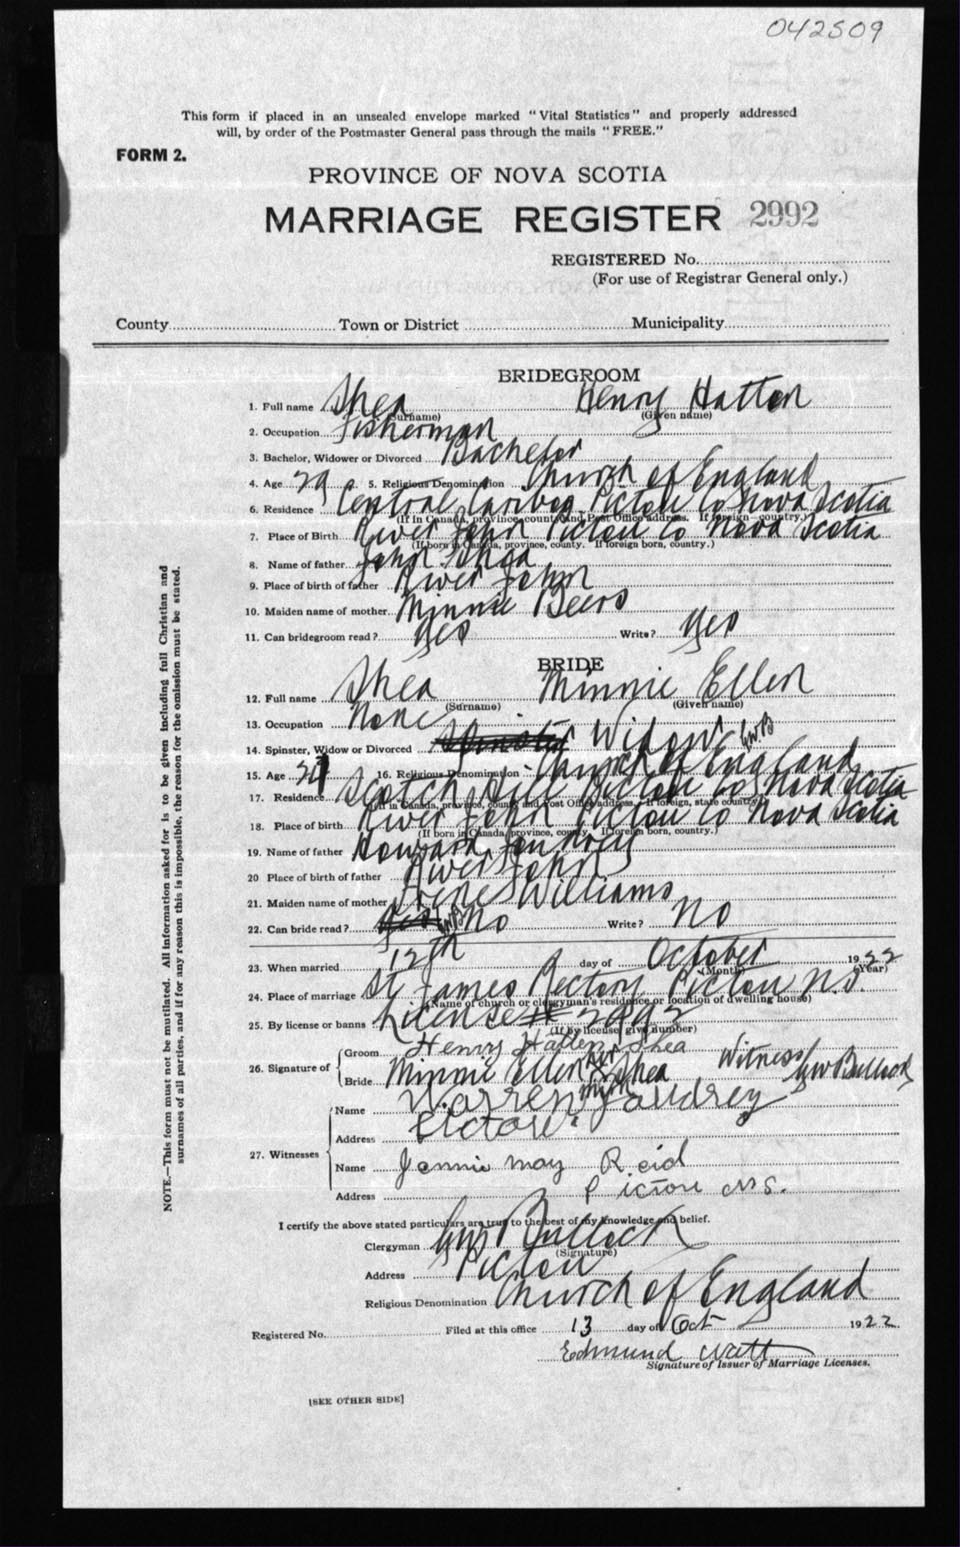 042509
This form if placed in an unsealed envelope marked "Vital Statistics" and properly addressed
will, by order of the Postmaster General pass through the mails "FREE."
FORM 2.
PROVINCE OF NOVA SCOTIA
MARRIAGE REGISTER 2992
REGISTERED No.
(For use of Registrar General only.)
County Town or District Municipality
BRIDEGROOM
1. Full name Shea Henry Hatton
(Surname) (Given name)
2. Occupation Fisherman
3. Bachelor, Widower or Divorced Bachelor
4. Age 29 5. Religious Denomination Church of England
6. Residence Central Caribou Pictou Co Nova Scotia
(If in Canada, province, county and Post Office address. If foreign—country.)
7. Place of Birth River John Pictou Co Nova Scotia
(If born in Canada, province, county. If foreign born, country.)
8. Name of father John Shea
9. Place of birth of father River John
10. Maiden name of mother Minnie Beers
11. Can bridegroom read? Yes Write? Yes
BRIDE
12. Full name Shea Minnie Ellen
(Surname) (Given name)
13. Occupation None
14. Spinster, Widow or Divorced Spinster Widow GWB
15. Age 16. Religious Denomination Church of England
17. Residence Scotch Hill Pictou Co Nova Scotia
(If in Canada, province, county and Post Office address. If foreign, state country)
18. Place of birth River John Pictou Co Nova Scotia
(If born in Canada, province, county. If foreign born, country.)
19. Name of father Howard
20 Place of birth of father River John
21. Maiden name of mother Irene Williams
22. Can bride read? Yes GWB No Write? No
23. When married 12th day of October 1922
(Month) (Year)
24. Place of marriage St James Rectory Pictou N.S.
(Name of church or clergyman's residence or location of dwelling house)
25. By license or banns License # 2992
(If by license, give number)
26. Signature of Groom Henry Hatten Shea
Bride Minnie Ellen her mark Shea Witness GW Bullock
27. Witnesses
Name Warren
Address Pictou.
Name Jennie May Reid
Address Pictou N.S.
I certify the above stated particulars are true to the best of my knowledge and belief.
Clergyman GW Bullock
(Signature)
Address Pictou
Religious Denomination Church of England
Registered No. Filed at this office 13 day of Oct 1922
Edmund Watt
Signature of Issuer of Marriage Licenses.
[SEE OTHER SIDE]
NOTE.—This form must not be mutilated. All information asked for is to be given including full Christian and
surnames of all parties, and if for any reason this is impossible, the reason for the omission must be stated.